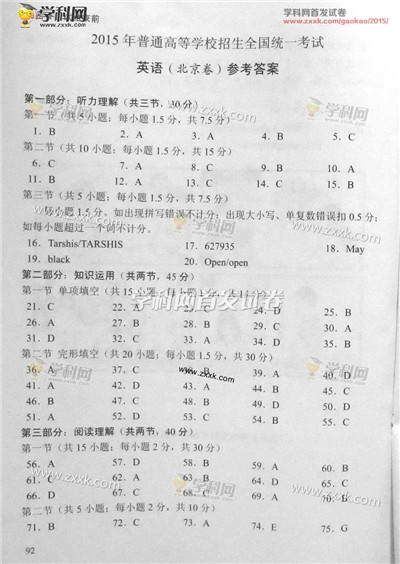 学科网
www.zxxk.com
启封前
学科网首发试卷
www.zxxk.com/gaokao/2015/
2015 年普通高等学校招生全国统一考试
英语（北京卷）参考答案
第一部分：听力理解（共三节，30 分）
第一节（共 5 小题；每小题 1.5 分，共 7.5 分）
1. B 2. A 3. A 4. B 5. C
第二节（共 10 小题；每小题 1.5 分，共 15 分）
6. C 7. A 8. C 9. B 10. A
11. B 12. A 13. C 14. C 15. B
第三节（共 5 小题；每小题 1.5 分，共 7.5 分）
每小题 1.5 分。如出现拼写错误不计分；出现大小写、单复数错误扣 0.5 分；
如每小题超过一个词不计分。
16. Tarshis/TARSHIS 17. 627935 18. May
19. black 20. Open/open
第二部分：知识运用（共两节，45 分）
第一节 单项填空（共 15 小题；每小题 1 分，共 15 分）
学科网首发试卷
21. C 22. A 24. D 25. B
www.zxxk.com
31. D 32. B 33. C 34. A 35. C
第二节 完形填空（共 20 小题；每小题 1.5 分，共 30 分）
36. A 37. C 38. B 39. A 40. D
41. C 42. B 43. A 44. B 45. D
46. D 47. A 48. B 49. C 50. D
51. A 52. D 53. C 54. B 55. C
第三部分：阅读理解（共两节，40 分）
第一节（共 15 小题；每小题 2 分，共 30 分）
56. A 57. D 58. B 59. A 60. D
61. C 62. A 63. C 64. B 65. A
66. D 67. B 68. C 69. A
第二节（共 5 小题；每小题 2 分，共 10 分）
71. B 72. C 73. A 74. E 75. G
92